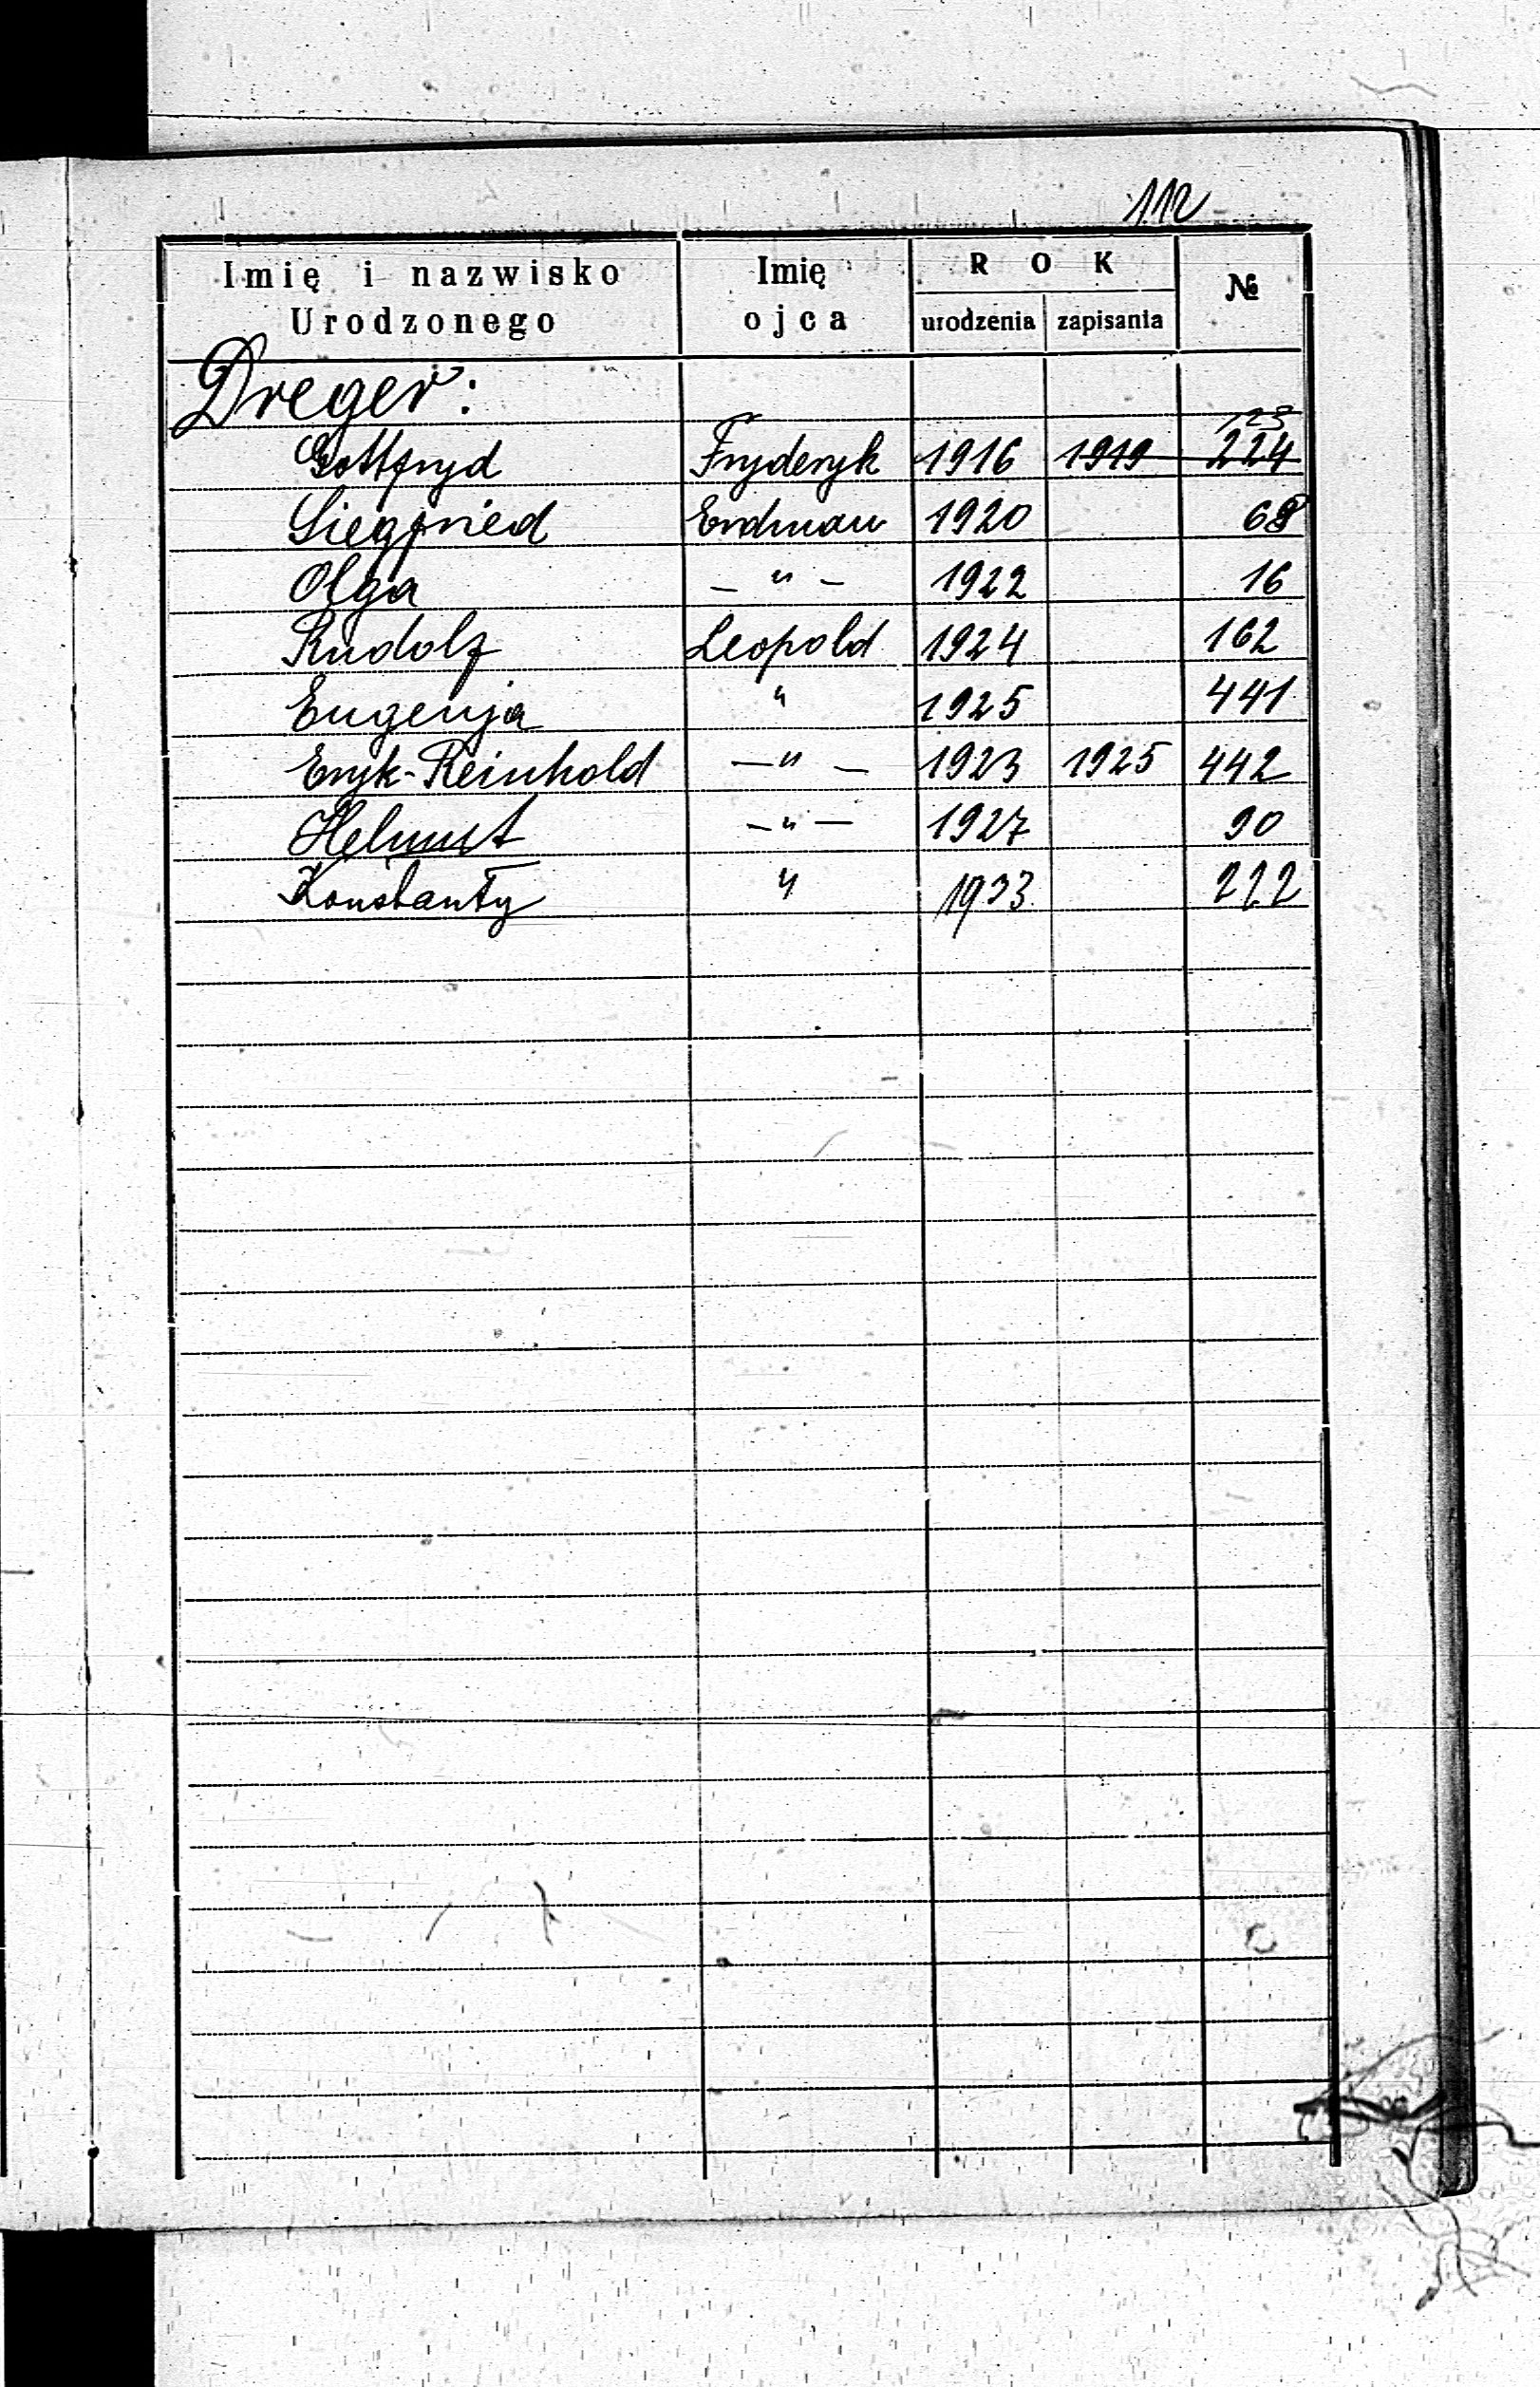 112
Imię i nazwisko Urodzonego Imię ojca ROK urodzenia zapisania №
Dreger:
123
Gottfryd Fryderyk 1916 1919 224
Siegfried Erdman 1920 68
Olga — " — 1922 16
Rudolf Leopold 1924 162
Eugenja " 1925 441
Eryk-Reinhold — " — 1923 1925 442
Helmut — " — 1927 90
Konstanty " 1933 222